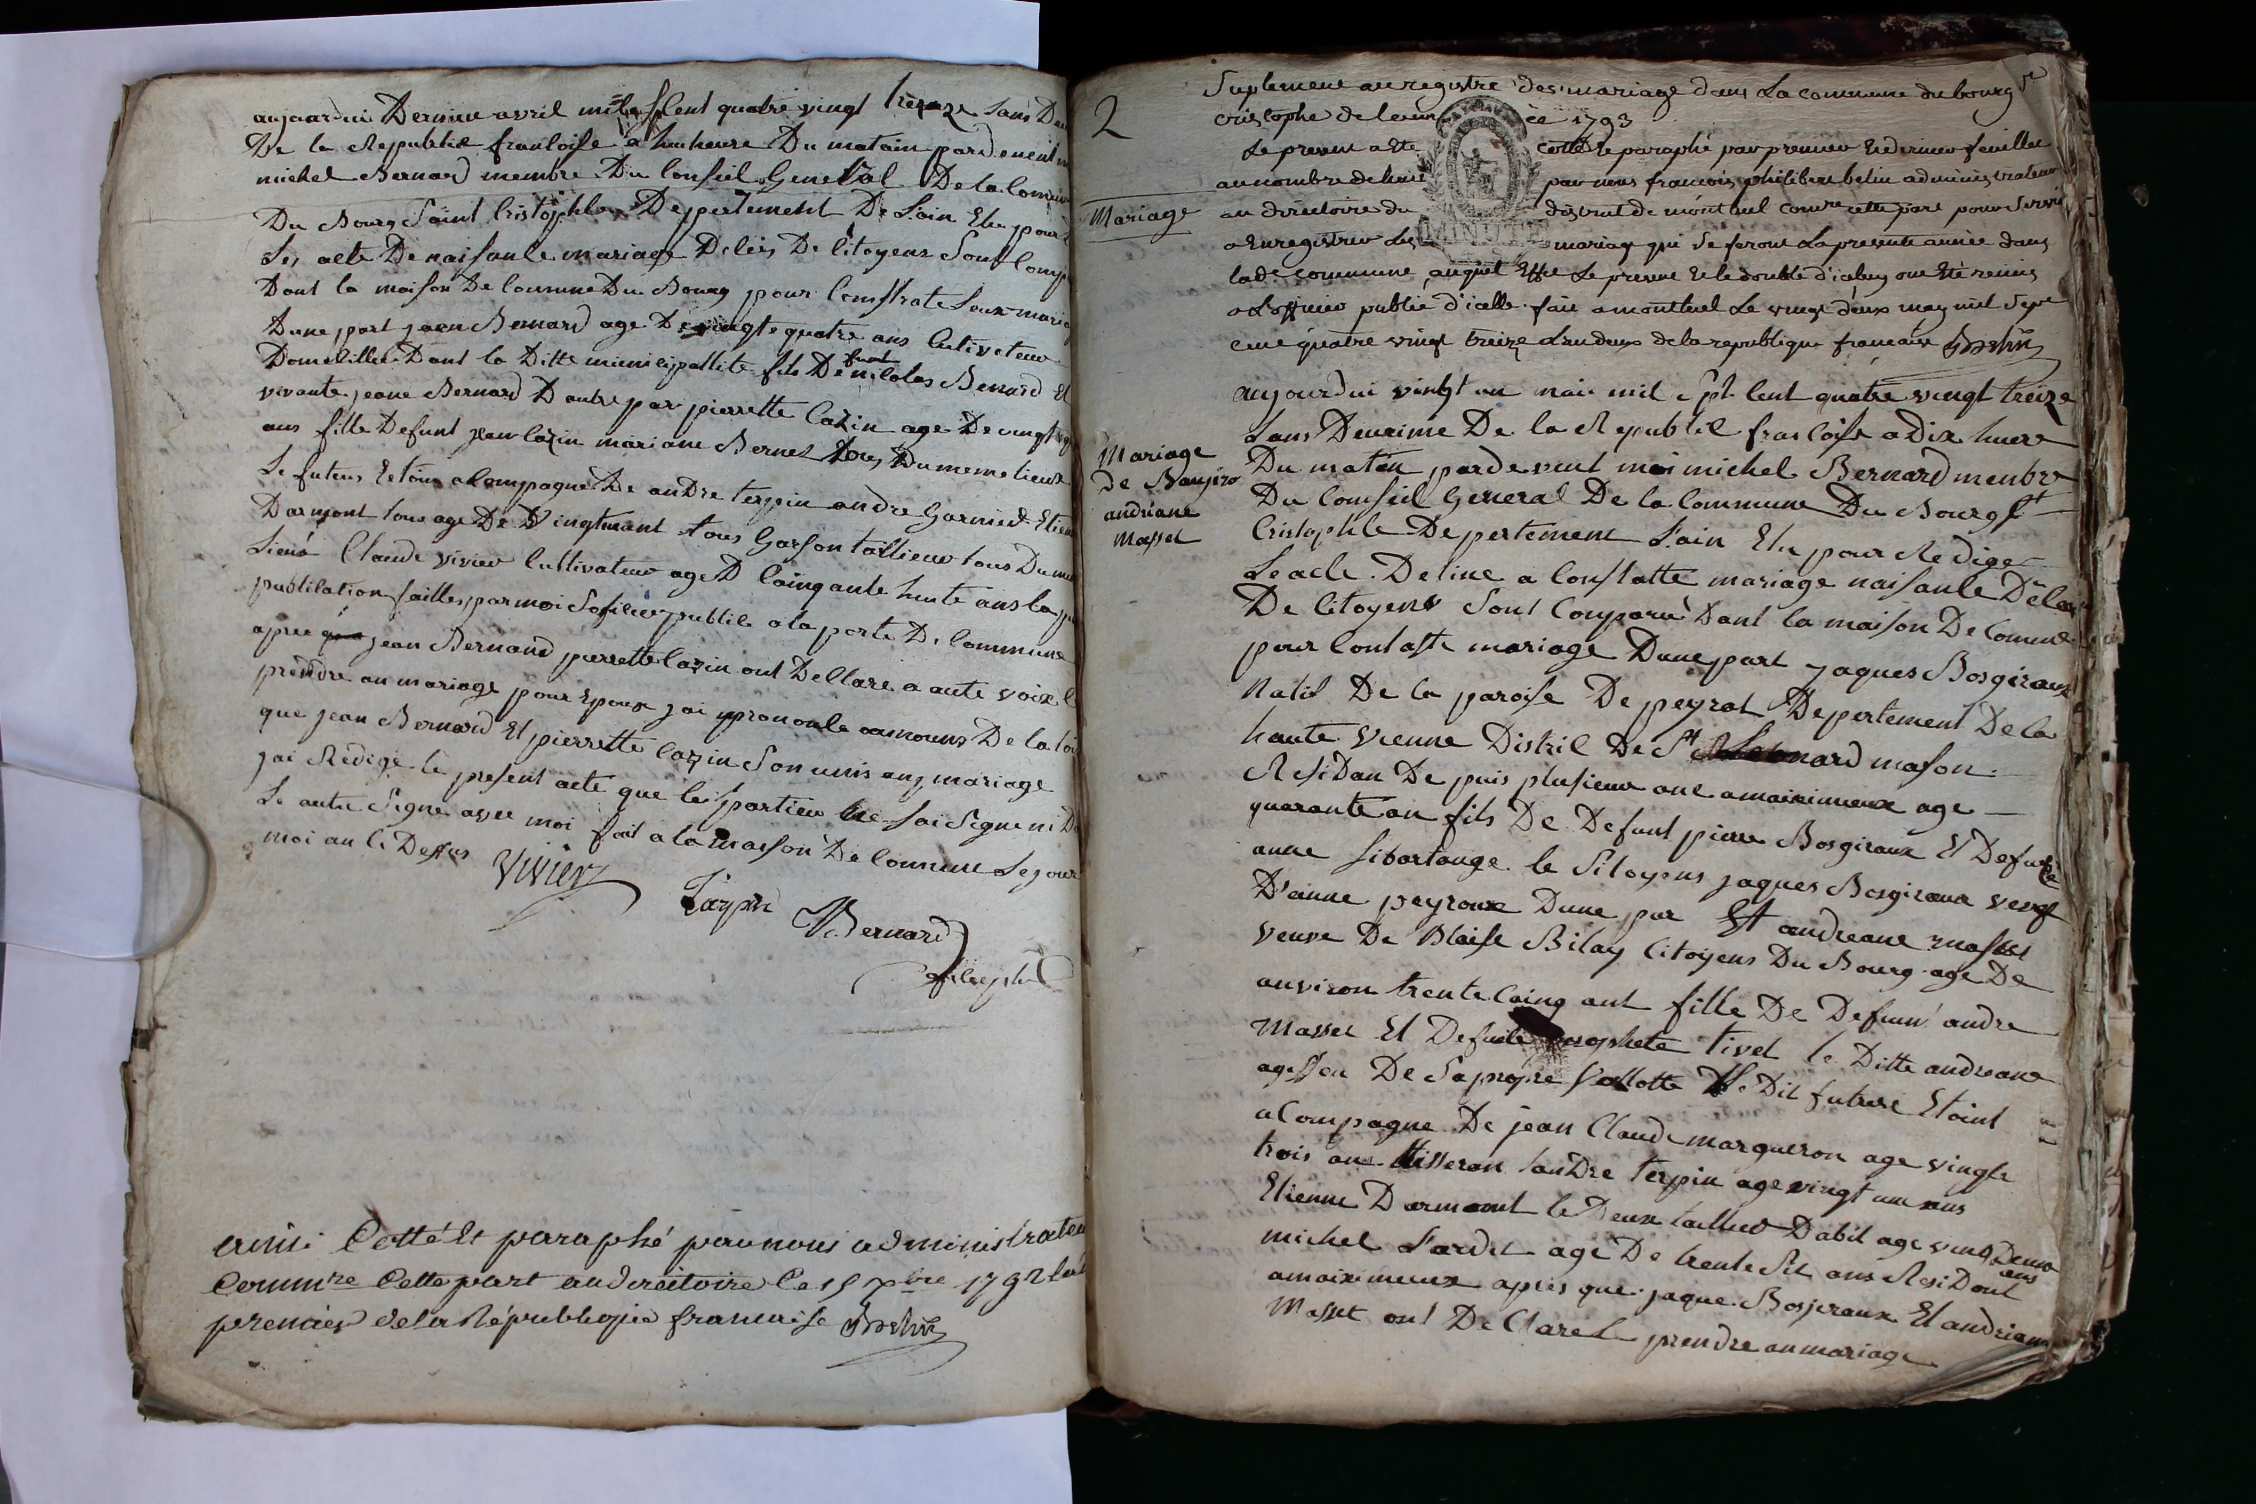 aujourdui Dernine avril mil sept Cent quatre vingt treze Lans
De la Republie francoise a huit heure Du matain pardeuent
michel Bernard membre Du Conseil General De la Comune
Du Bourg Saint Cristophle Depertement De Lain Elu pour
Les acte De naisance mariage Deceis De Citoyens Sont Comp
Dant la maison De Commune Du Bourg pour Constrate Leur maria
Dune part jean Bernard age De vingt quatre ans Cultivateur
Domcillie Dant la Ditte municipallite fils De funt nicolas Benard Et
vivante jeane Bernard Dautre par pierrette Cazin age De vingt
ans fille Defunt jean Cazin mariane Bernet tous Du meme lieux
Le futeur Etoins acompagne De andre terpin andre Garnier Etien
Darmont tous age De Vingtun ant tous Garson tallieur tous Du
Lieux Claude vivier Cultivateur age D Cainqante huite ans la
publication faittes par moi Lofficier publile a la porte De Commune
apres jean Bernand pierrette Cazin ont Dellare a aute voix
prendre an mariage pour Epoux jai prononce aunoms De la loi
que jean Bernard Et pierrette Cazin Son unis anz mariage
jai Redege le present acte que les partien ne Sai Signe ni
Le autre Signe avec moi fait a la maison De Commune Le jour
moi an Ci Dessus
Vivier
Terpin
Bernard
officie
Cotté Et paraphé par nous administrateu
Commre Cette part au directoire Ce 15 Xbre 1792 lan
premier de la République francaise Belin
2
Suplement au registre des mariage dans La commune du bourg St
cristophe de lannée 1793
Le present a Ete cotté Et paraphé par premier Et dernier feuillet
au nombre de huit par nous francois philibert belin administrateur
au directoire du district de montluel comre cette part pour Servir
a Enregistrer Les mariage qui Se feront La presente année dans
lade commune, auquel Effet Le present Et le double d'icelluy ont Eté remis
a Lofficier publie d'icelle fait a montluel Le vingt deux may mil Sept
cent quatre vingt treize Lan deux de la republique francaise Belin
Mariage
MINUTE
Mariage
de Baujiro
andriane
Masset
aujourdui vingt un mai mil c pt Cent quatre vingt treize
Lans Deuxime De la Republil francoise a Dix huere
Du matin pardevent moi michel Bernard menbre
Du Conseil General De la Commune Du Bourg St
Cristophle Depertement Lain Elu pour Redige
Le acte De tine a Constatte mariage naisante Decè
De Citoyens Sont Comparu Dant la maison De Comune
pour Contaste mariage Dune part jaques Bosgiraux
Natif De la paroise De peyrat Depertement De la
haute vienne Distril De St Leonard mason
ResiDan De puis plusieur ant amaiximieux age
quarante an fils De Defunt pierre Bosgiraux Et Defunte
anne Sibartange le Sitoyens jaques Bosgiraux veuf
D'anne peyroux Dune par Et andreane masset
veuve De Blaise Bilay Citoyens Du Bourg age De
anviron trente Cainq ant fille De Defun andre
Masset Et Defunte tivet le Ditte andreane
De Sapropre Le Dit future Etoint
aCompagne De jean Claude marqueron age vingte
trois ans tisseran terpin age vingt un ans
Etienne Darmont le Deux tallieur Dabit age vins Deux
ans
michel Sardet age De trente Sit ans ResiDant
amaiximieux apres que jaque Bosjeraux Et andriane
Masset ont De Claret prendre an mariage